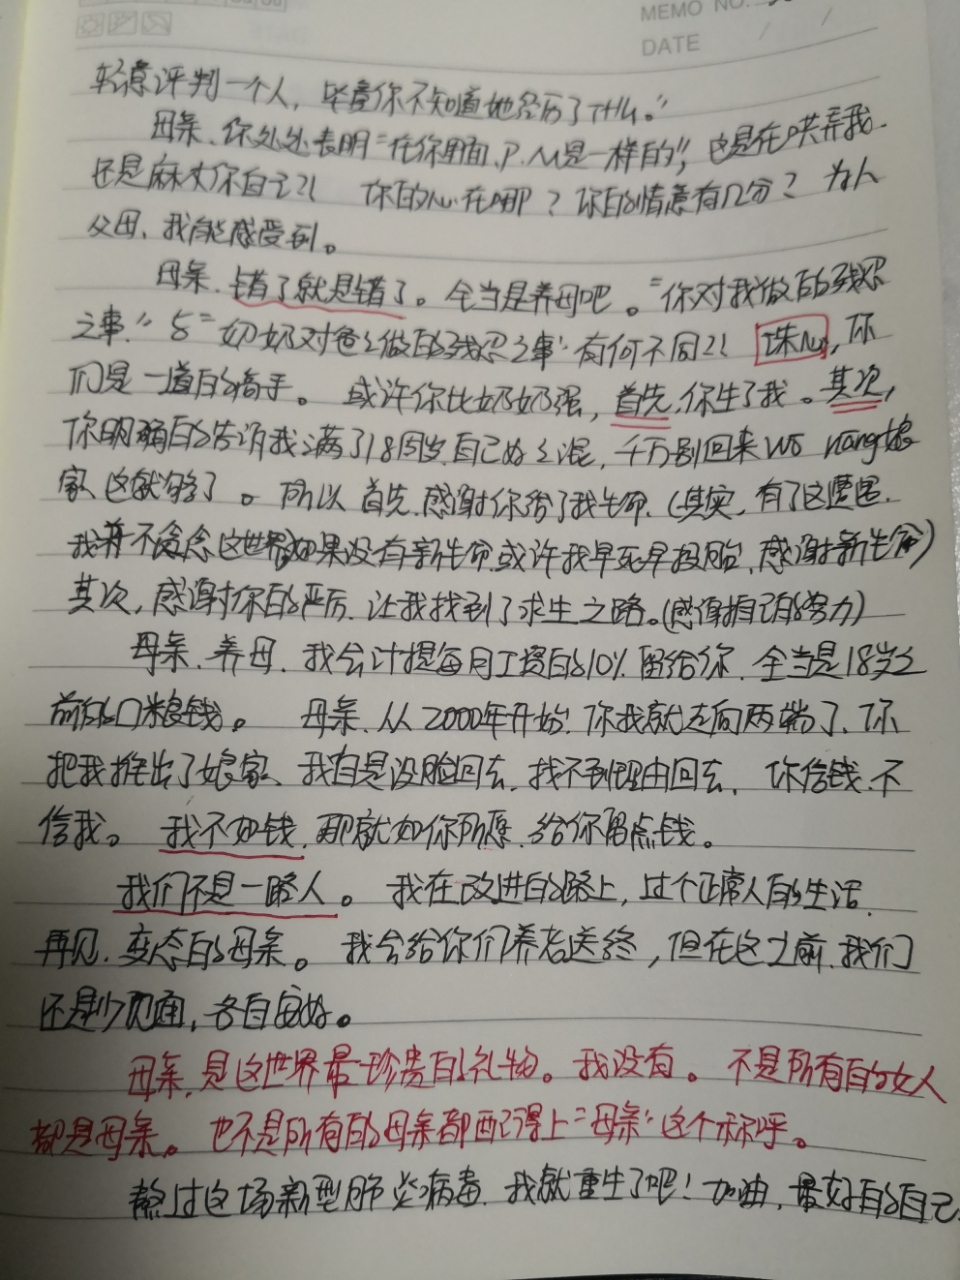 MEMO NO.
DATE / /
轻意评判一个人，毕竟你不知道她经历了什么。”
母亲、你处处表明“在你里面、P、M是一样的”，也是在哄弄我
还是麻木你自己？！ 你的心在哪？你的情意有几分？ 为人
父母、我能感受到。
母亲、错了就是错了。全当是养母吧。“你对我做的残忍
之事”与“奶奶对爸爸做的残忍之事”有何不同？！ 诛心，你
们是一道的高手。 或许你比奶奶强，首先，你生了我。其次，
你明确的告诉我满了18周岁自己好好混，千万别回来 wo nang 娘
家、这就够了。所以首先、感谢你给了我生命、（其实，有了这遭遇、
我并不贪念这世界，如果没有新生命，或许我早死早投胎、感谢新生命）
其次，感谢你的严厉、让我找到了求生之路。（感谢自己的努力）
母亲、养母、我会计提每月工资的10%留给你、全当是18岁之
前的口粮钱。 母亲、从2000年开始，你我就走向两端了、你
把我推出了娘家、我自是没脸回去、找不到理由回去、 你信钱、不
信我。 我不如钱、那就如你所愿、给你留点钱。
我们不是一路人。 我在改进的路上，过个正常人的生活、
再见、变态的母亲。 我会给你们养老送终，但在这之前、我们
还是少见面，各自安好。
母亲，是这世界最珍贵的礼物。我没有。 不是所有的女人
都是母亲。也不是所有的母亲都配得上“母亲”这个称呼。
熬过这场新型肺炎病毒、我就重生了吧！加油，最好的自己